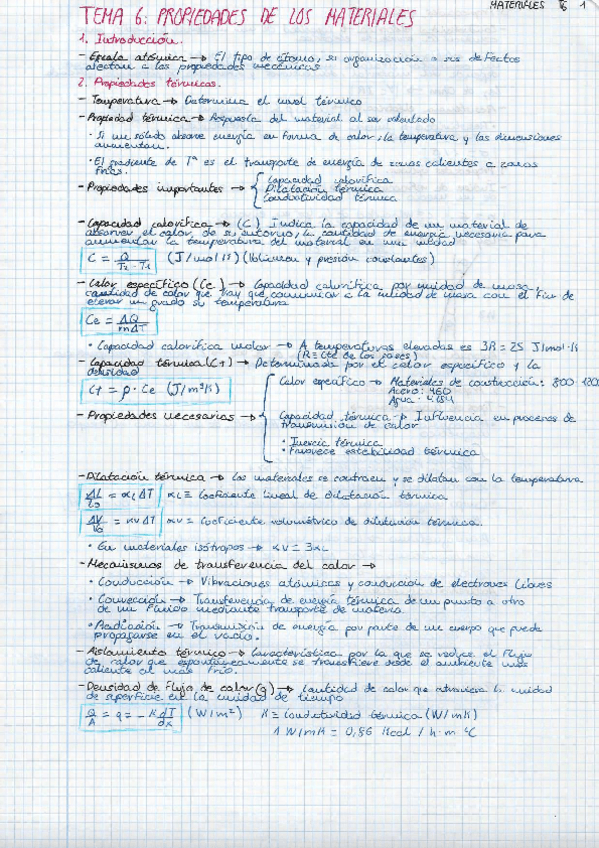 MATERIALES T6 1
TEMA 6: PROPIEDADES DE LOS MATERIALES
1. Introducción.
- Escala atómica → El tipo de átomo, su organización o sus defectos
afectan a las propiedades mecánicas
2. Propiedades térmicas.
- Temperatura → Determina el nivel térmico
- Propiedad térmica → Respuesta del material al ser calentado
· Si un sólido absorbe energía en forma de calor, la temperatura y las dimensiones
aumentan.
· El gradiente de Tª es el transporte de energía de zonas calientes a zonas
frías.
- Propiedades importantes → { Capacidad calorífica
Dilatación térmica
Conductividad térmica
- Capacidad calorífica → (C) Indica la capacidad de un material de
absorver el calor de su entorno, la cantidad de energía necesaria para
aumentar la temperatura del material en una unidad
C = Q / T2 - T1 (J/mol K) (Volumen y presión constantes)
- Calor específico (Ce) → Capacidad calorífica por unidad de masa,
cantidad de calor que hay que comunicar a la unidad de masa con el fin de
elevar un grado su temperatura
Ce = ΔQ / mΔT
· Capacidad calorífica molar → A temperaturas elevadas es 3R = 25 J/mol·K
(R ≡ Cte de los gases)
- Capacidad térmica (Ct) → Determinada por el calor específico y la
densidad
Ct = ρ · Ce (J/m³K)
Calor específico → Materiales de construcción: 800-1200
Acero: 460
Agua: 4184
- Propiedades necesarias → { Capacidad térmica → Influencia en procesos de
transmisión de calor
· Inercia térmica
· Favorece estabilidad térmica
- Dilatación térmica → Los materiales se contraen y se dilatan con la temperatura
ΔL / L0 = αL ΔT αL ≡ Coeficiente lineal de dilatación térmica
ΔV / V0 = αV ΔT αV = Coeficiente volumétrico de dilatación térmica.
· En materiales isótropos → αV = 3αL
- Mecanismos de transferencia del calor →
· Conducción → Vibraciones atómicas y conducción de electrones libres
· Convección → Transferencia de energía térmica de un punto a otro
de un fluido mediante transporte de materia.
· Radiación → Transmisión de energía por parte de un cuerpo que puede
propagarse en el vacío.
- Aislamiento térmico → Característica por la que se reduce el flujo
de calor que espontáneamente se transfiere desde el ambiente más
caliente al más frío.
- Densidad de flujo de calor (q) → Cantidad de calor que atraviesa la unidad
de superficie en la unidad de tiempo
Q / A = q = - K dT / dx (W/m²) K ≡ Conductividad térmica (W/mK)
1 W/mK = 0,86 Kcal / h·m·ºC